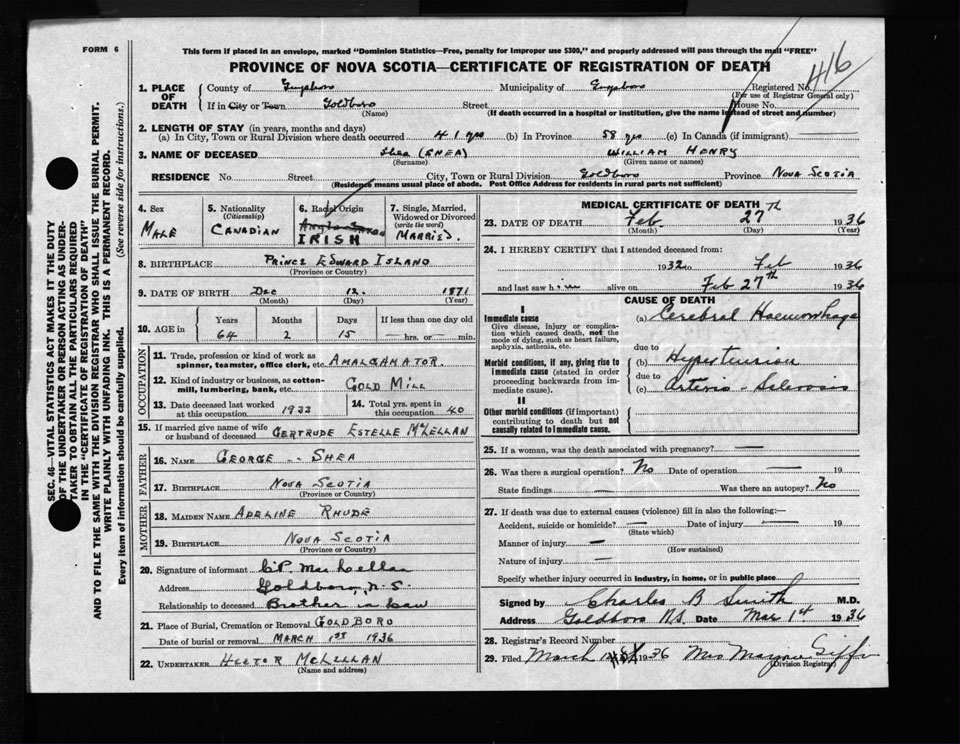 FORM 6
This form if placed in an envelope, marked "Dominion Statistics—Free, penalty for improper use $300," and properly addressed will pass through the mail "FREE"
PROVINCE OF NOVA SCOTIA—CERTIFICATE OF REGISTRATION OF DEATH
416
1. PLACE OF DEATH
County of Guysboro Municipality of Guysboro Registered No.
(For use of Registrar General only)
If in City or Town Goldboro Street House No.
(Name) (If death occurred in a hospital or institution, give the name instead of street and number)
2. LENGTH OF STAY (in years, months and days)
(a) In City, Town or Rural Division where death occurred 41 yrs (b) In Province 58 yrs (c) In Canada (if immigrant)
3. NAME OF DECEASED Shea (SHEA) WILLIAM HENRY
(Surname) (Given name or names)
RESIDENCE No. Street City, Town or Rural Division Goldboro Province NOVA SCOTIA
(Residence means usual place of abode. Post Office Address for residents in rural parts not sufficient)
4. Sex MALE
5. Nationality (Citizenship) CANADIAN
6. Racial Origin Anglo Saxon IRISH
7. Single, Married, Widowed or Divorced (write the word) MARRIED.
8. BIRTHPLACE PRINCE EDWARD ISLAND
(Province or Country)
9. DATE OF BIRTH Dec 12. 1871
(Month) (Day) (Year)
10. AGE in Years Months Days If less than one day old
64 2 15 hrs. or min.
OCCUPATION
11. Trade, profession or kind of work as spinner, teamster, office clerk, etc. AMALGAMATOR.
12. Kind of industry or business, as cotton-mill, lumbering, bank, etc. GOLD MILL
13. Date deceased last worked at this occupation 1933
14. Total yrs. spent in this occupation 40
15. If married give name of wife or husband of deceased GERTRUDE ESTELLE McLELLAN
FATHER
16. NAME GEORGE -- SHEA
17. BIRTHPLACE NOVA SCOTIA
(Province or Country)
MOTHER
18. MAIDEN NAME ADELINE RHUDE
19. BIRTHPLACE NOVA SCOTIA
(Province or Country)
20. Signature of informant C.P. MacLellan
Address Goldboro, N.S.
Relationship to deceased Brother in Law
21. Place of Burial, Cremation or Removal GOLDBORO
Date of burial or removal MARCH 1ST 1936
22. UNDERTAKER HECTOR McLELLAN
(Name and address)
MEDICAL CERTIFICATE OF DEATH
23. DATE OF DEATH Feb. 27th 1936
(Month) (Day) (Year)
24. I HEREBY CERTIFY that I attended deceased from:
1932 to Feb 1936
and last saw him alive on Feb 27th 1936
CAUSE OF DEATH
I
Immediate cause
Give disease, injury or complication which caused death, not the mode of dying, such as heart failure, asphyxia, asthenia, etc.
(a) Cerebral Haemorrhage
due to
Morbid conditions, if any, giving rise to immediate cause (stated in order proceeding backwards from immediate cause).
(b) Hypertension
due to
(c) Arterio-Sclerosis
II
Other morbid conditions (if important) contributing to death but not causally related to immediate cause.
25. If a woman, was the death associated with pregnancy? —
26. Was there a surgical operation? No Date of operation — 19
State findings — Was there an autopsy? No
27. If death was due to external causes (violence) fill in also the following:—
Accident, suicide or homicide? — Date of injury — 19
(State which)
Manner of injury —
(How sustained)
Nature of injury —
Specify whether injury occurred in industry, in home, or in public place
Signed by Charles B Smith M.D.
Address Goldboro N.S. Date Mar 1st 1936
28. Registrar's Record Number
29. Filed March 1936 Mrs Marjorie Giffin
(Division Registrar)
SEC. 46—VITAL STATISTICS ACT MAKES IT THE DUTY
OF THE UNDERTAKER OR PERSON ACTING AS UNDER-
TAKER TO OBTAIN ALL THE PARTICULARS REQUIRED
IN THE "CERTIFICATE OF REGISTRATION OF DEATH"
AND TO FILE THE SAME WITH THE DIVISION REGISTRAR WHO SHALL ISSUE THE BURIAL PERMIT.
WRITE PLAINLY WITH UNFADING INK. THIS IS A PERMANENT RECORD.
Every item of information should be carefully supplied. (See reverse side for instructions.)